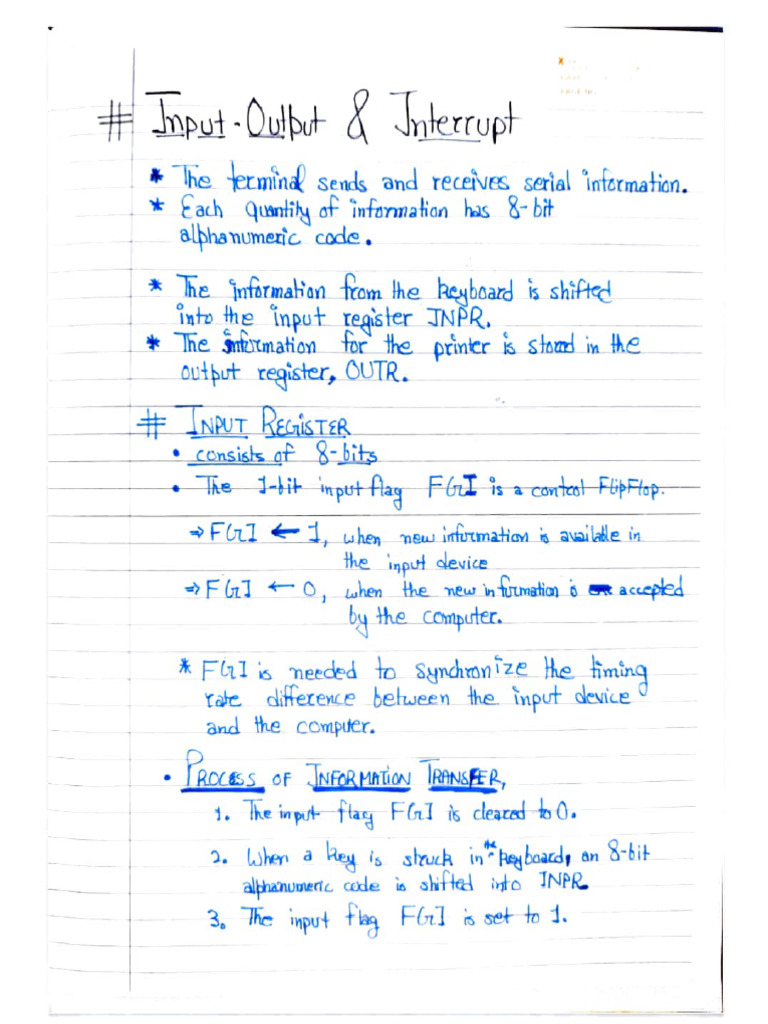 # Input-Output & Interrupt
* The terminal sends and receives serial information.
* Each quantity of information has 8-bit
alphanumeric code.
* The information from the keyboard is shifted
into the input register INPR.
* The information for the printer is stored in the
output register, OUTR.
# INPUT REGISTER
• consists of 8-bits
• The 1-bit input flag FGI is a control FlipFlop.
⇒ FGI ← 1, when new information is available in
the input device
⇒ FGI ← 0, when the new information is accepted
by the computer.
* FGI is needed to synchronize the timing
rate difference between the input device
and the computer.
• PROCESS OF INFORMATION TRANSFER,
1. The input flag FGI is cleared to 0.
2. When a key is struck in the keyboard, an 8-bit
alphanumeric code is shifted into INPR
3. The input flag FGI is set to 1.